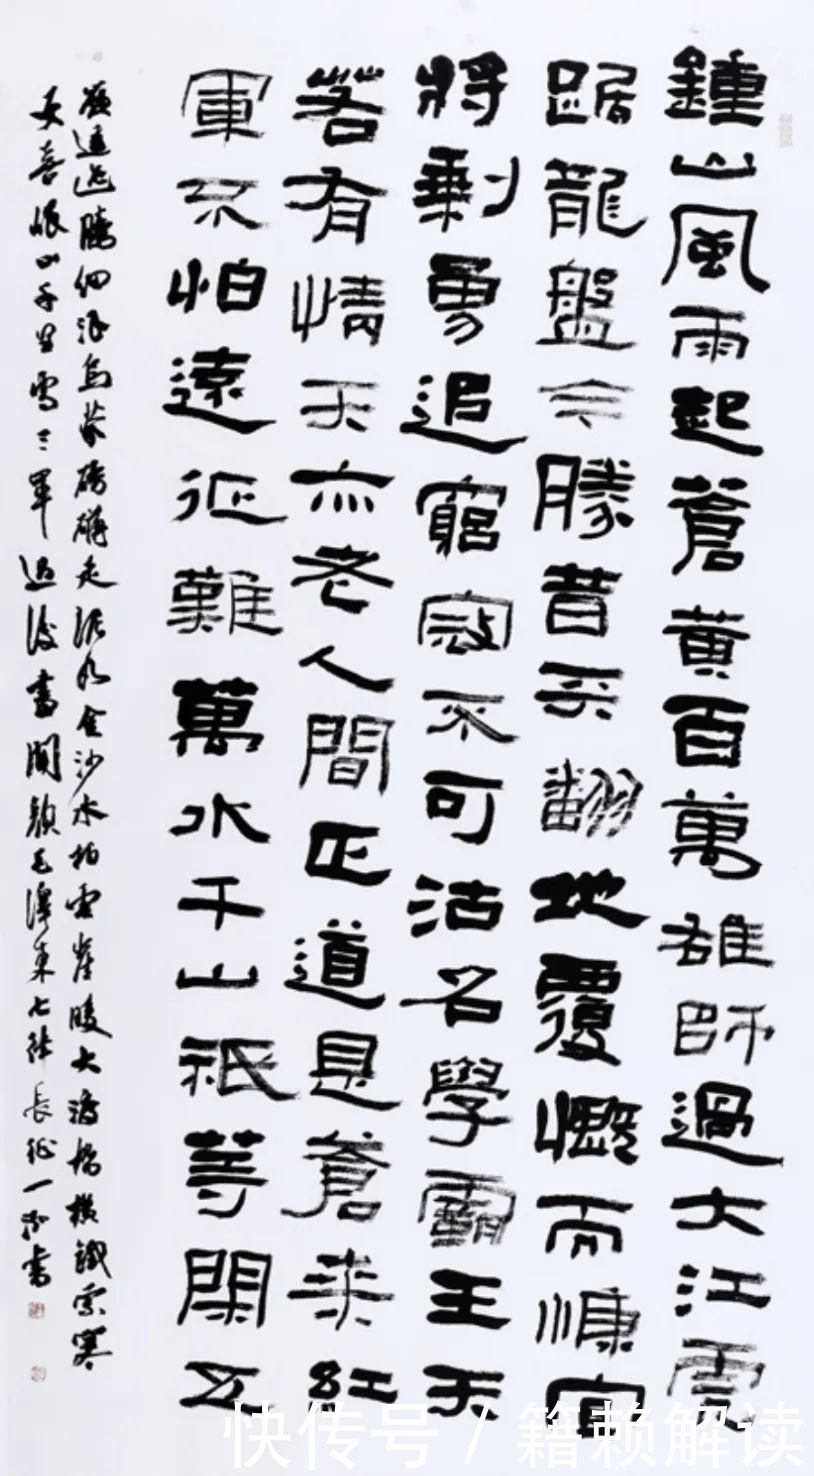 鍾山風雨起蒼黃百萬雄師過大江虎
踞龍盤今勝昔天翻地覆慨而慷宜
將剩勇追窮寇不可沽名學霸王天
若有情天亦老人間正道是蒼桑紅
軍不怕遠征難萬水千山祇等閑五
嶺逶迤騰細浪烏蒙磅礴走泥丸金沙水拍雲崖暖大渡橋橫鐵索寒
更喜岷山千里雪三軍過後盡開顏毛澤東七律長征一書
快传号/籍赖解读